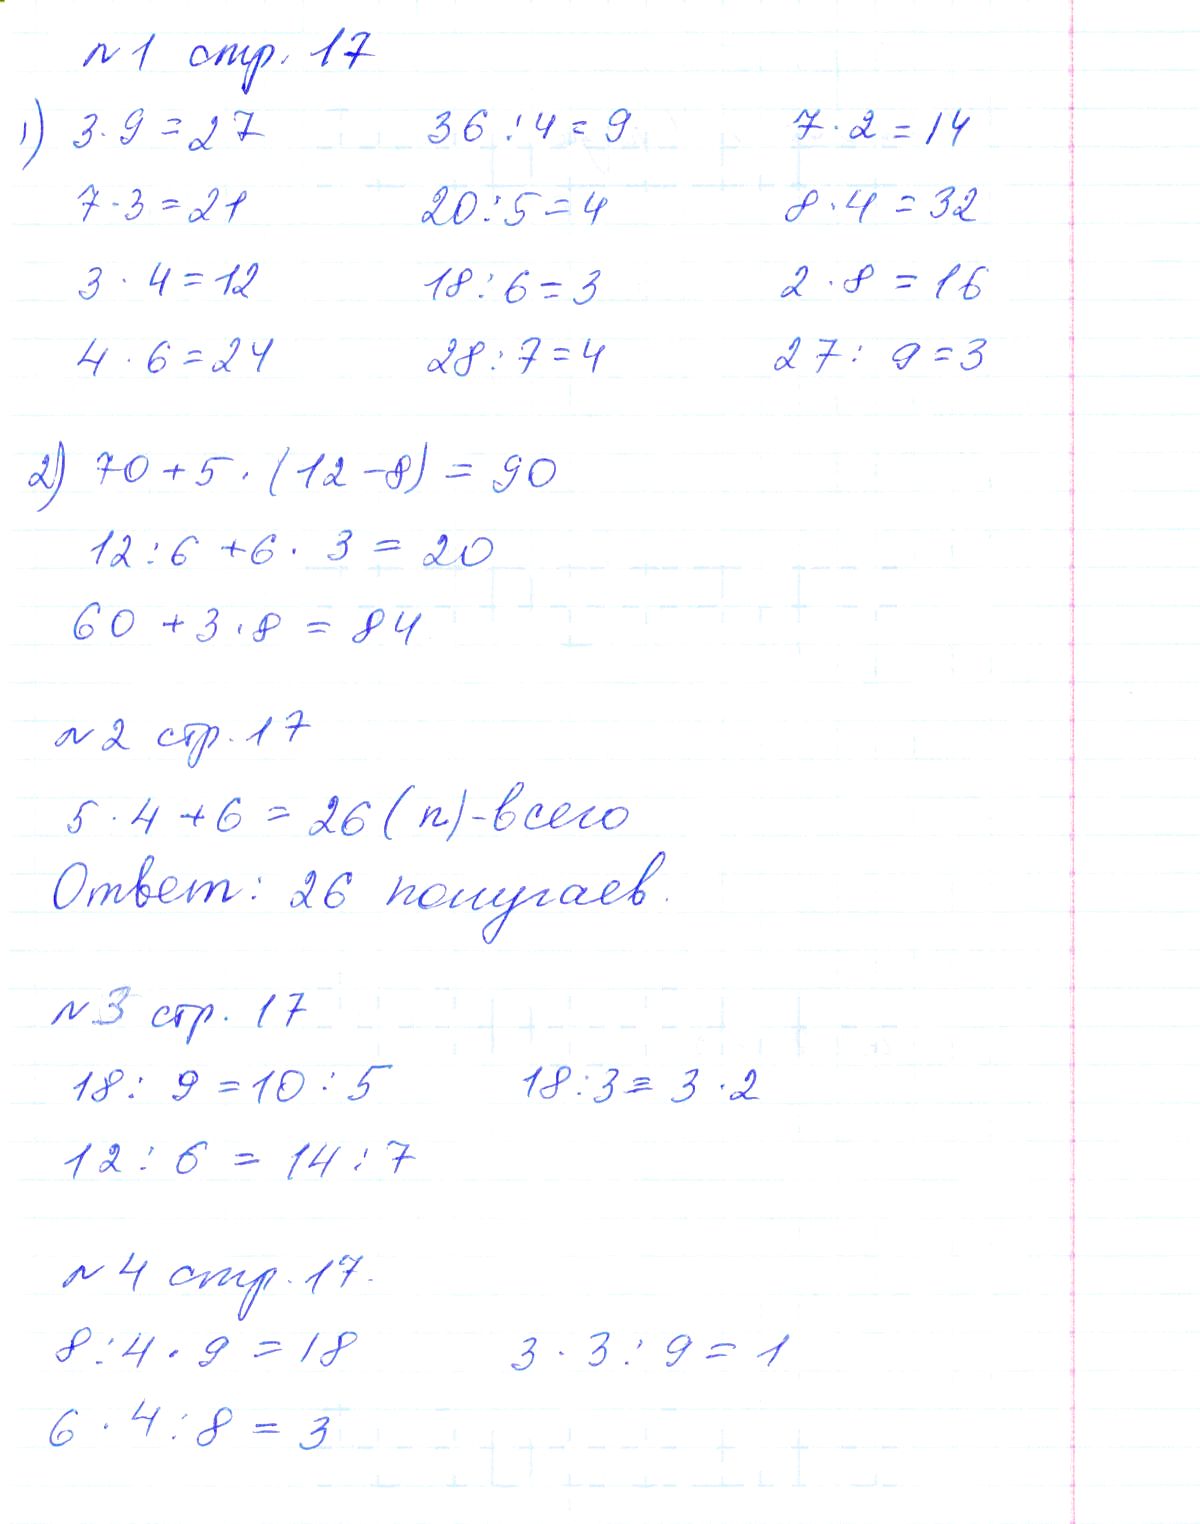 №1 стр. 17
1) 3·9=27 36:4=9 7·2=14
7·3=21 20:5=4 8·4=32
3·4=12 18:6=3 2·8=16
4·6=24 28:7=4 27:9=3
2) 70+5·(12-8)=90
12:6+6·3=20
60+3·8=84
№2 стр. 17
5·4+6=26(п)-всего
Ответ: 26 попугаев.
№3 стр. 17
18:9=10:5 18:3=3·2
12:6=14:7
№4 стр. 17.
8:4·9=18 3·3:9=1
6·4:8=3